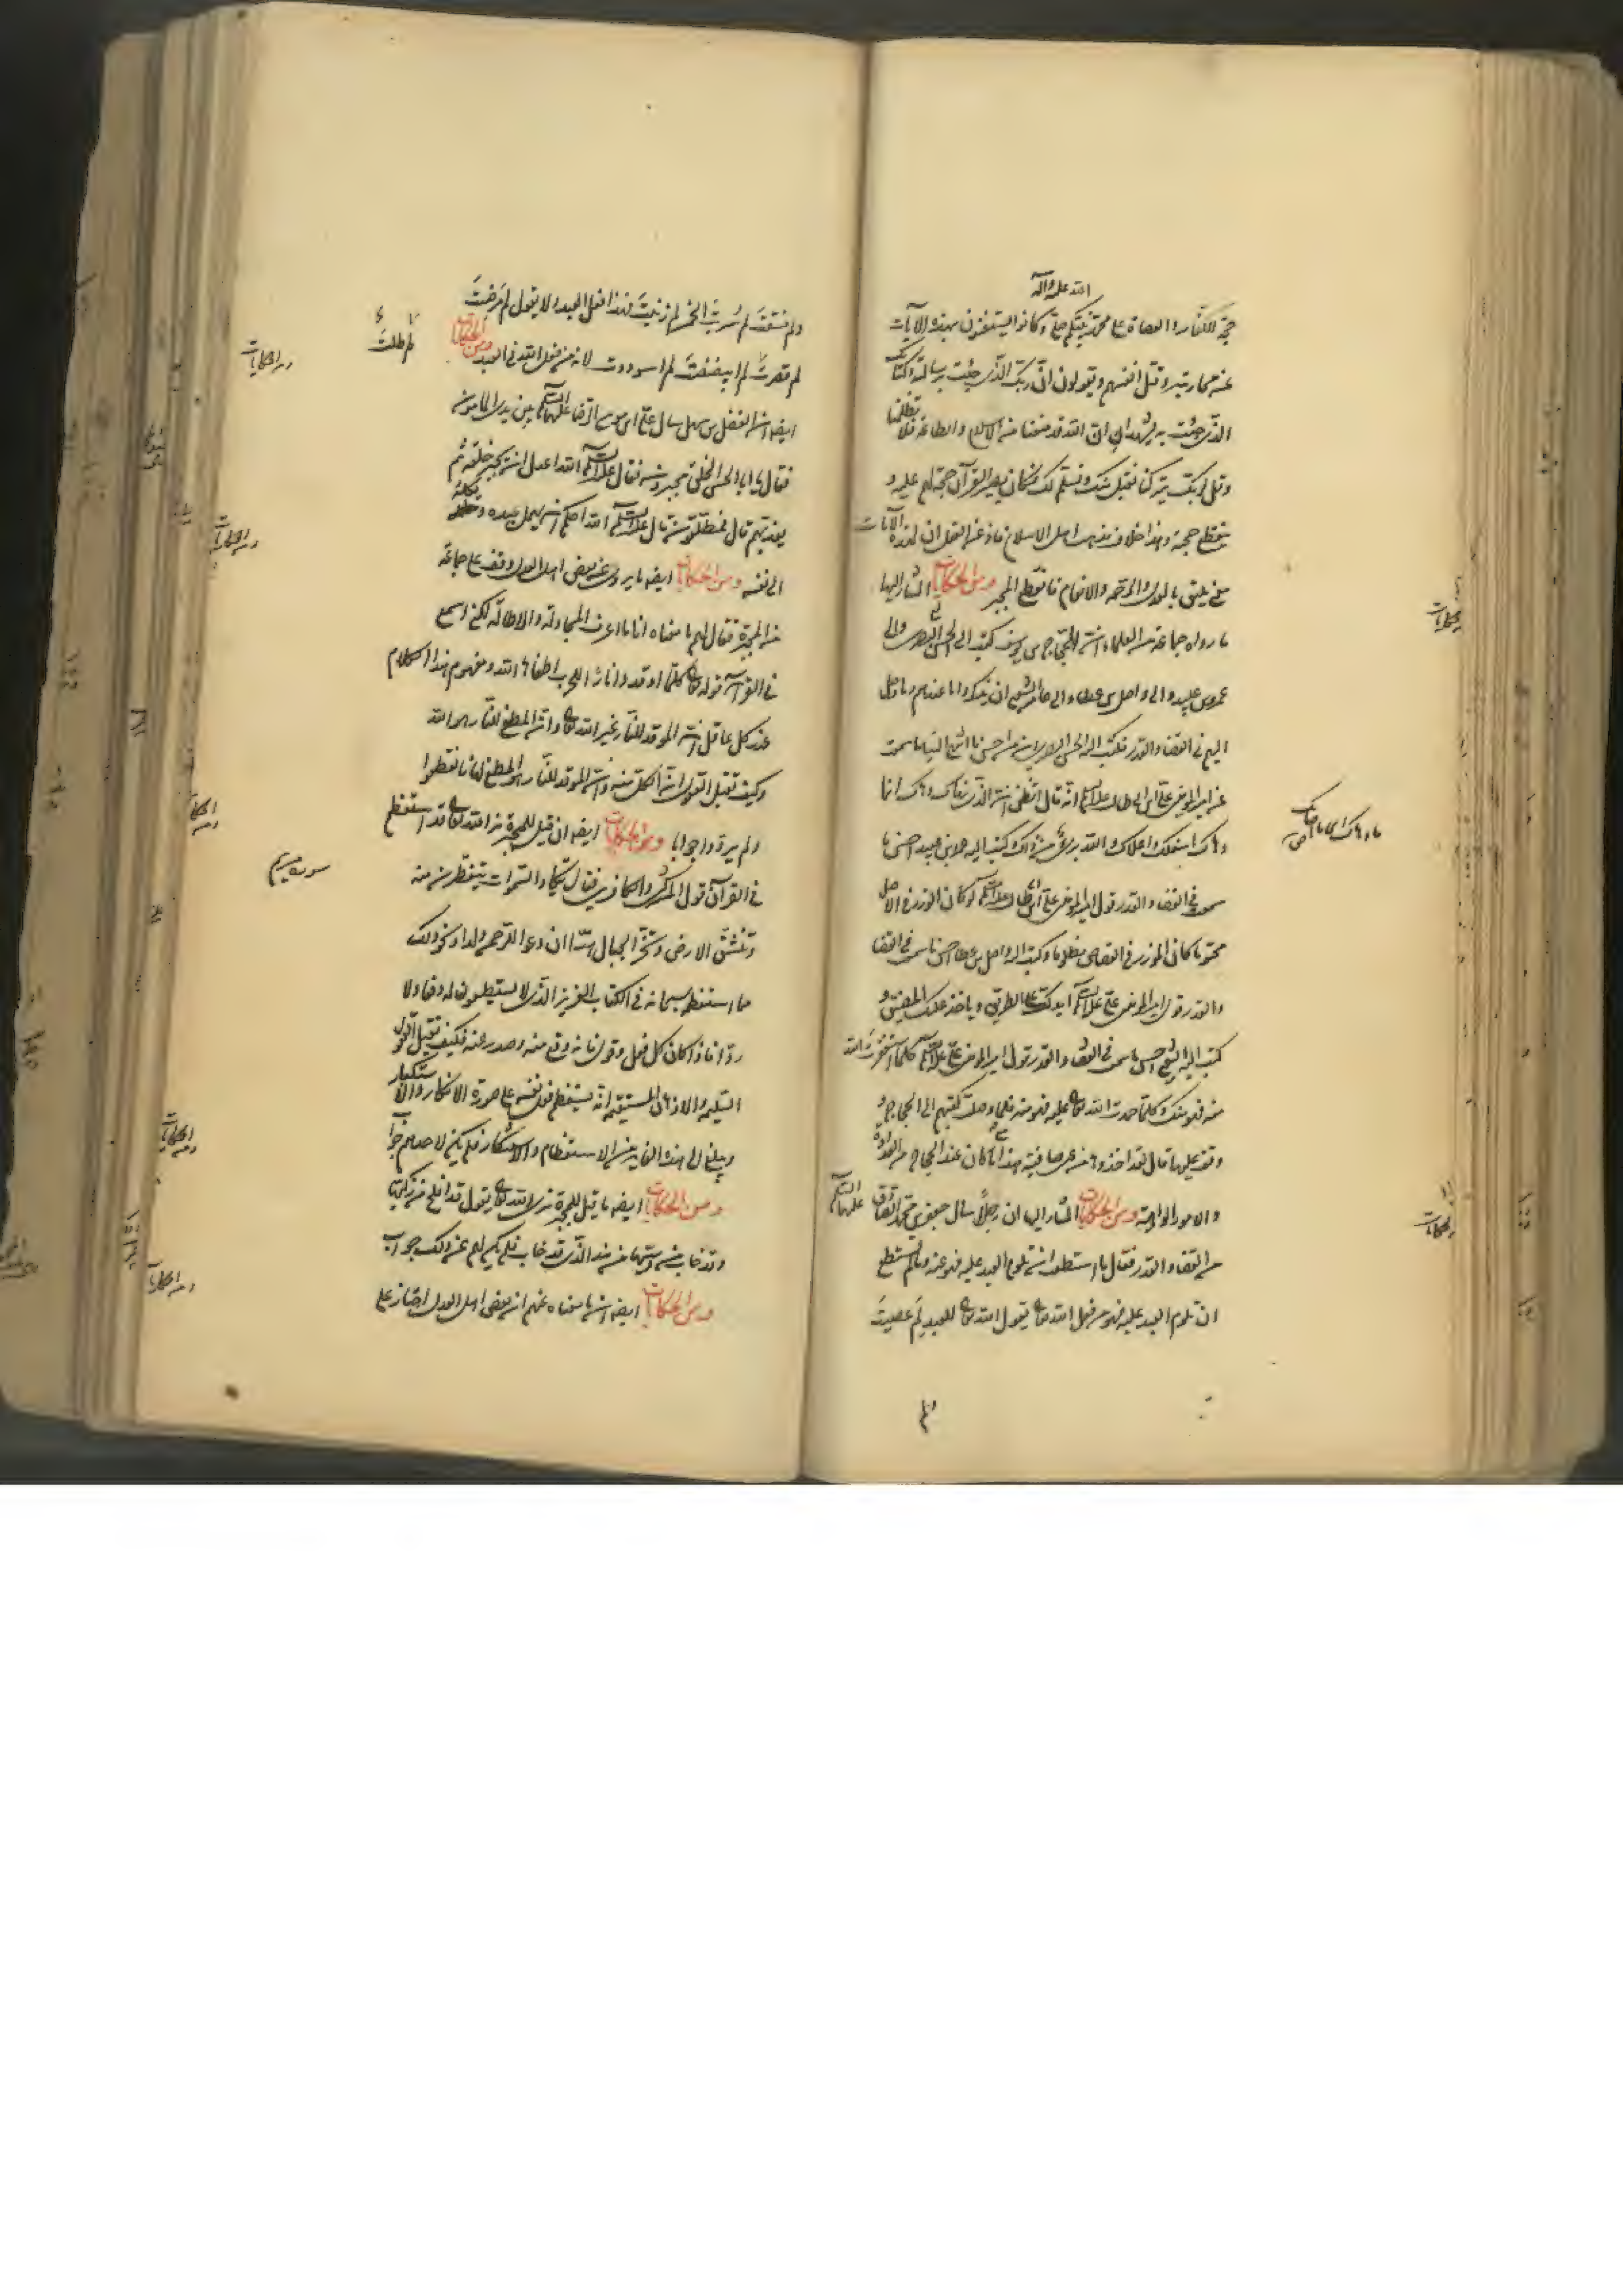 الله علیه وآله
حجة للكفار والعصاة على محمد نبیكم صلى وكانوا یستغنون بهذه الآیات
عن محاربته وقتل انفسهم ویقولون ان ربك الذی جئت برسالته وكتابك
الذی جئت به یشهد لنا ان الله قد منعنا من الاسلام والطاعة فلا تظلمنا
وقل لربك یتركنا نقبل منك ونسلم لك فكان یصیر القرآن حجة لهم علیه و
ینقطع حجته وهذا خلاف مذهب اهل الاسلام فاذ عن القول ان لهذه الآیات
معنى یلیق بالعدل والرحمة والانعام فانقطع المجبر ومن الحكایات المشار الیها
ما رواه جماعة من العلماء انه الحجاج بن یوسف كتب الى الحسن البصری والى
عمرو بن عبید والى واصل بن عطاء والى عامر الشعبی ان یذكروا ما عندهم وما وصل
الیهم فی القضاء والقدر فكتب الیه الحسن البصری ان من احسن ما انتهى الینا ما سمعت
عن امیر المؤمنین علی ابن ابی طالب علیه السلم انه قال اتظن انه الذی نهاك دهاك انما
دهاك اسفلك واعلاك والله بریء من ذاك وكتب الیه عمرو بن عبید احسن ما
سمعت فی القضاء والقدر قول امیر المؤمنین علی ابن ابی طالب علیه السلم لو كان الوزر فی الاصل
محتوما كان الموزر فی القصاص مظلوما وكتب الیه واصل بن عطا احسن ما سمعت فی القضا
والقدر قول امیر المؤمنین علی علیه السلم ایدلك على الطریق ویاخذ علیك المضیق و
كتب الیه الشعبی احسن ما سمعت فی القضا والقدر قول امیر المؤمنین علی علیه السلم كلما استغفرت الله
منه فهو منك وكلما حمدت الله تعالى علیه فهو منه فلما وصلت كتبهم الى الحجاج و
وقف علیها قال لقد اخذوها من عین صافیة هذا مع ما كان عند الحجاج من العداوة
والامور الواهیة ومن الحكایات المشار الیها ان رجلا سال جعفر بن محمد الصادق علیهما السلم
من القضاء والقدر فقال ما استطعت ان تلوم العبد علیه فهو منه وما لم تستطع
ان تلوم العبد علیه فهو من فعل الله تعالى یقول الله تعالى للعبد لم عصیت
ومن الحكایات
ما دهاك الى ما دهاك
ومن الحكایات
ولم فسقت لم شربت الخمر لم زنیت فهذا فعل العبد ولا یقول لم مرضت
لم قصرت لم ابیضضت لم اسوددت لانه من فعل الله فی العبد ومن الحكایات
ایضا انه الفضل بن سهل سال علی ابن موسى الرضا علیهما السلم بین یدی المامون
فقال یا ابا الحسن الخلق مجبرون فقال علیه السلم الله اعدل ان یجبر خلقه ثم
یعذبهم قال فمطلقون قال علیه السلم الله احكم ان یهمل عبده ویكله
الى نفسه ومن الحكایات ایضا ما یروى عن بعض اهل العدل وقف على جماعة
من المجبرة فقال لهم ما معناه انا ما اعرف المجادلة والاطالة لكنی اسمع
فی القرآن قوله تعالى كلما اوقدوا نارا للحرب اطفأها الله ومفهوم هذا الكلام
عند كل عاقل انه الموقد للنار غیر الله تعالى وانه المطفئ للنار هو الله
وكیف تقبل العقول ان الكل منه وانه الموقد للنار هو المطفئ لها فانقطعوا
ولم یردوا جوابا ومن الحكایات ایضا انه قیل للمجبرة نرى الله تعالى قد استعظم
فی القرآن قول المشركین والكافرین فقال تكاد السموات یتفطرن منه
وتنشق الارض وتخر الجبال هدا ان دعوا للرحمن ولدا ونحو ذلك
مما استعظم سبحانه فی الكتاب العزیز الذی لا یستطیعون له دفعا ولا
ردا فاذا كان كل فعل وقول فانه وقع منه وصدر عنه فكیف تقبل العقول
السلیمه والاذهان المستقیمه انه یستعظم فعل نفسه على صورة الانكار والاستكبار
ویبلغ الى هذه الغایه من الاستعظام والاستنكار فلم یكن لاحدهم جوابا
ومن الحكایات ایضا ما قیل للمجبرة نرى الله تعالى یقول قد افلح من زكیها
وقد خاب من دسیها فمن هذا الذی قد خاب فلم یكن لهم عن ذلك جواب
ومن الحكایات ایضا انه ما معناه عنهم ان بعض اهل العدل اجتاز على
لم طلت
ومن الحكایات
ومن الحكایات
سوره مریم
ومن الحكایات
ومن الحكایات